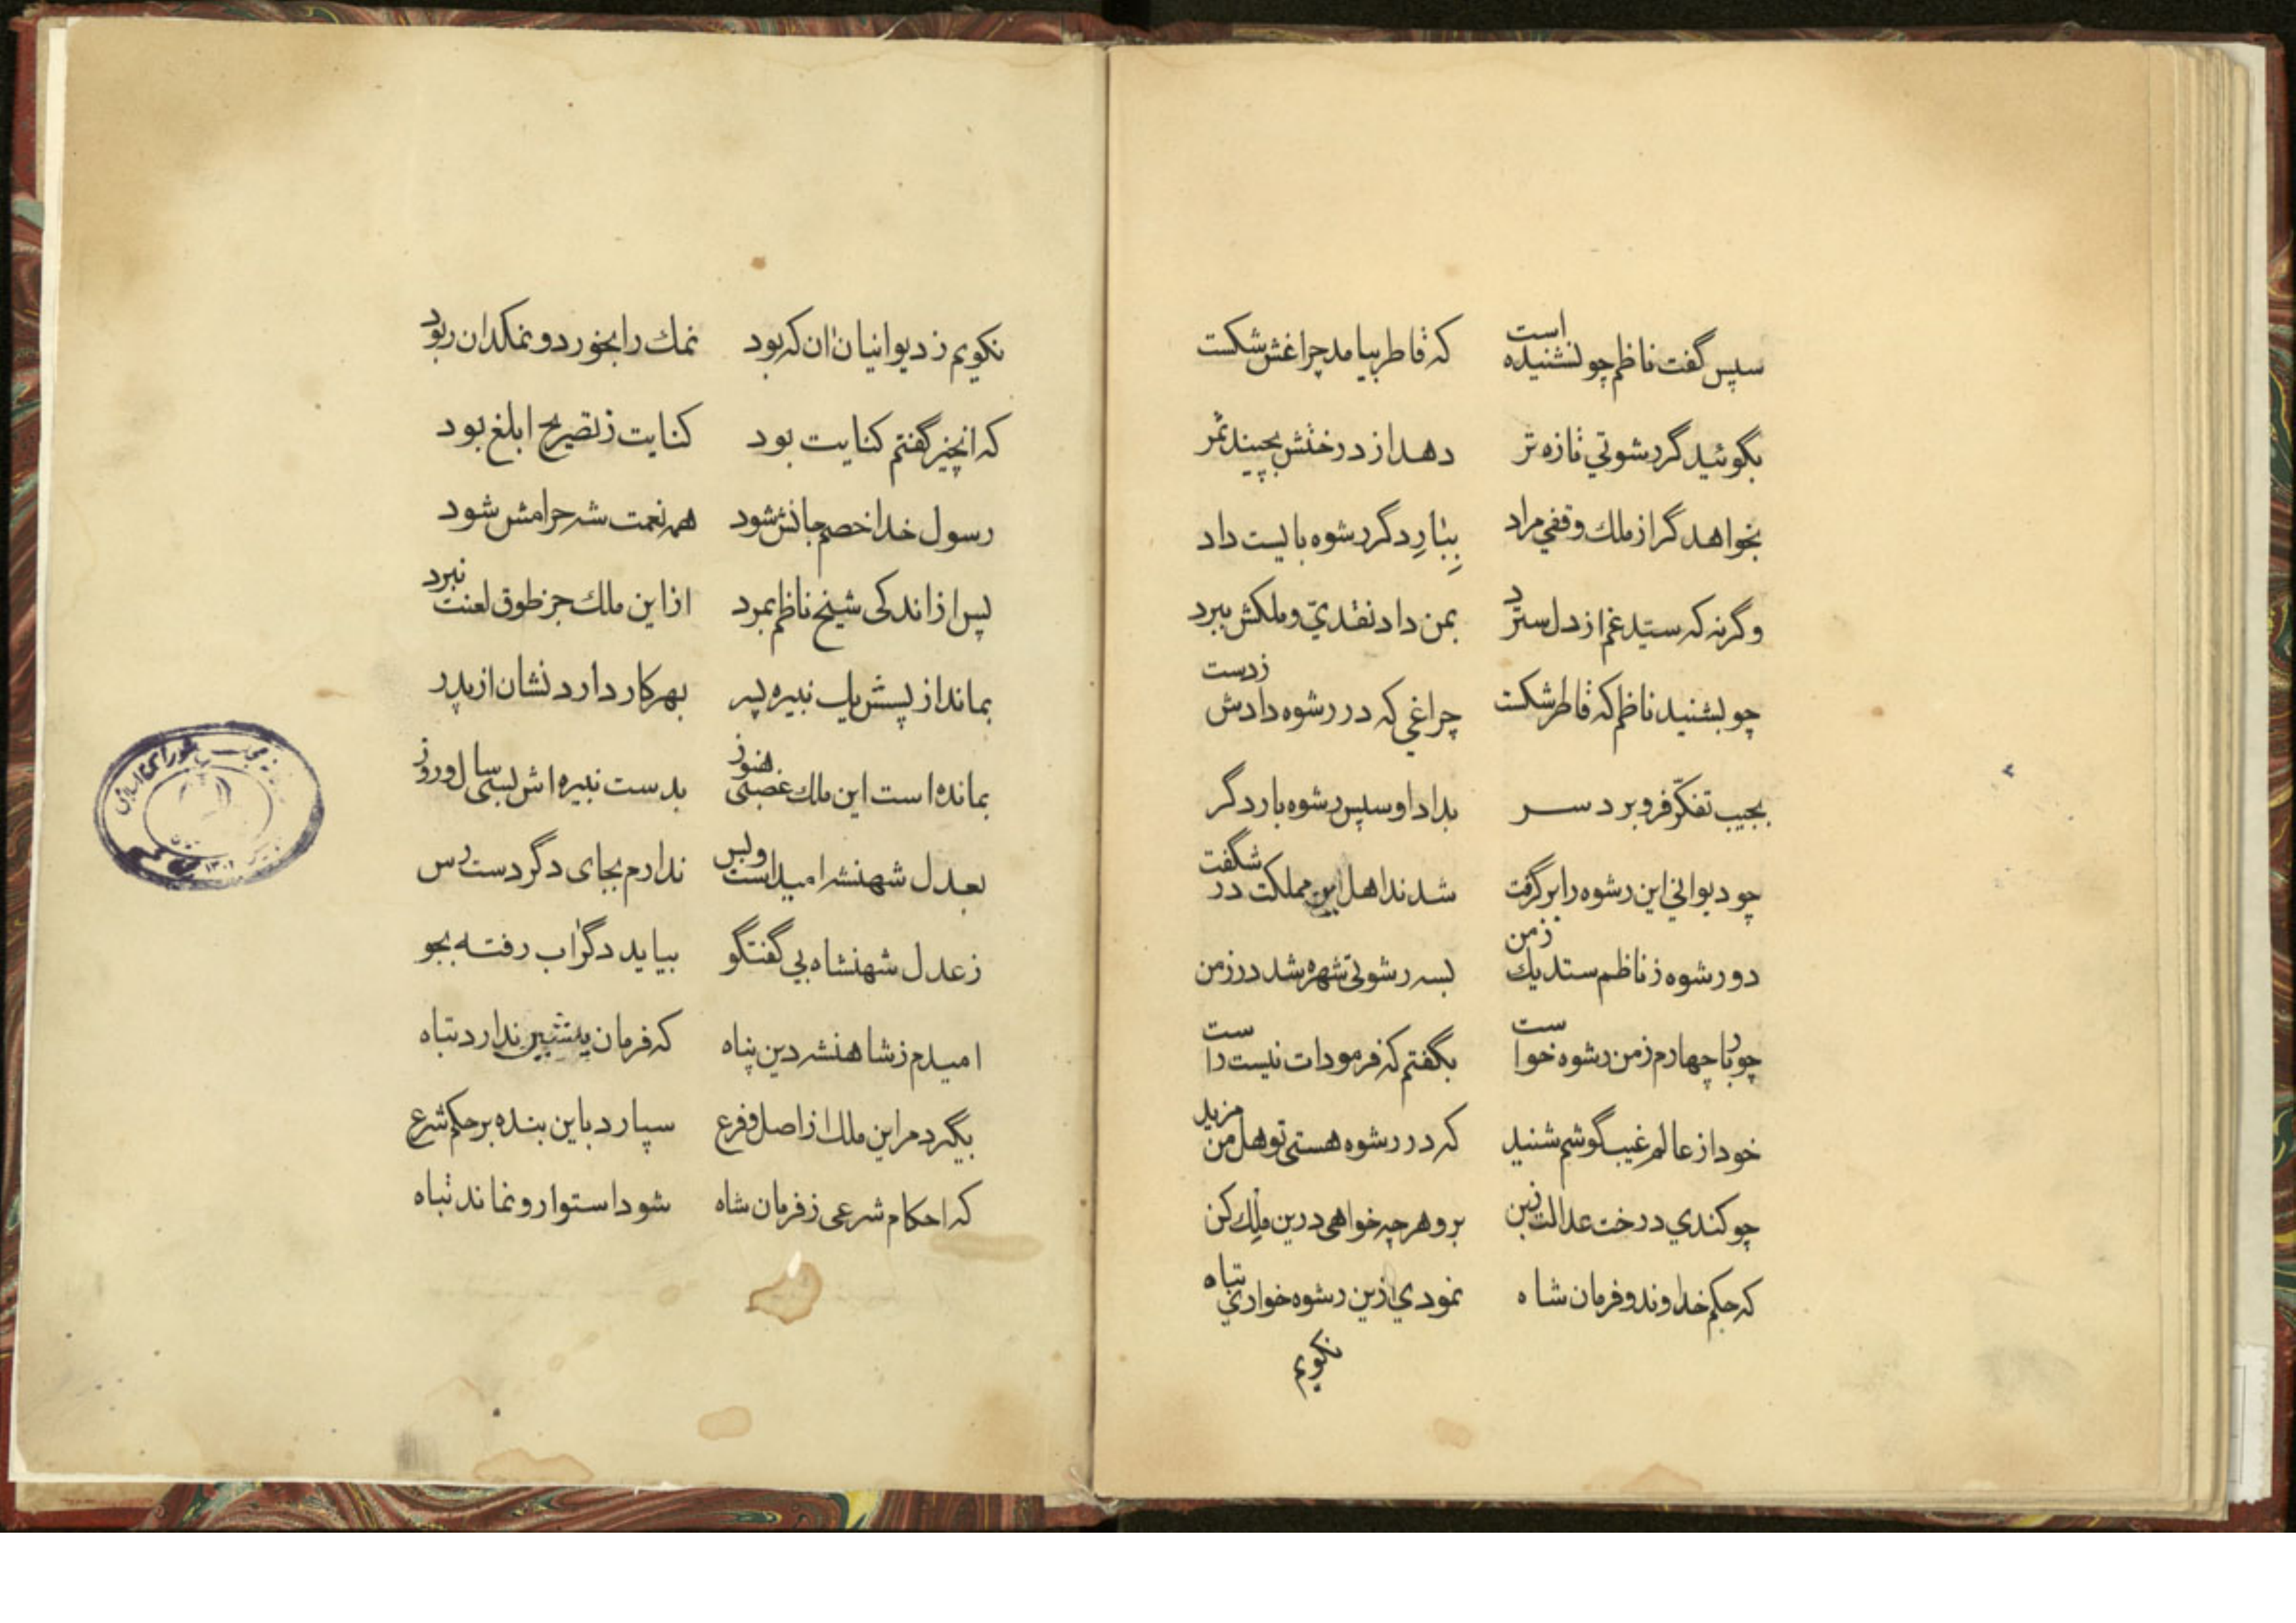 سپس گفت ناظم چو بشنیده است که قاطر بیامد چراغش شکست
بگوئید گر رشوتي تازه تر دهد از درختش بچیند ثمر
بخواهد گر از ملك وقفي مراد ببارِ دگر رشوه بایست داد
وگرنه که سیّد غم از دل سترد بمن داد نقديّ و ملکش ببرد
چو بشنید ناظم که قاطر شکست چراغي که در رشوه دادش زدست
بجیب تفکّر فرو برد سر بداد او سپس رشوه بار دگر
چو دیواني این رشوه را بر گرفت شدند اهل این مملکت در شگفت
دو رشوه ز ناظم ستد یك زمن بسه رشوتی شهره شد در زمن
چو بار چهارم زمن رشوه خواست بگفتم که فرمودات نیست راست
خود از عالم غیب گوشم شنید که در رشوه هستی تو هل من مزید
چو کندي درخت عدالت زبن برو هر چه خواهی درین ملِك کن
که حکم خداوند و فرمان شاه نمودي ازین رشوه خواري تباه
نکویم
نکویم ز دیوانیان ان که بود نمك را بخورد و نمکدان ربود
که انچیز گفتم کنایت بود کنایت ز تصریح ابلغ بود
رسول خدا خصم جانش شود همه نعمت شه حرامش شود
پس از اندکی شیخ ناظم بمرد از این ملك جز طوق لعنت نبرد
بماند از پسش یك نبیره پسر بهر کار دارد نشان از پدر
بمانده است این ملك غصبی هنوز بدست نبیره اش بسی سال و روز
بعدل شهنشه امید است و بس ندارم بجای دگر دست رس
ز عدل شهنشاه بی گفتگو بیاید دگر اب رفته بجو
امیدم ز شاهنشه دین پناه که فرمان پیشین ندارد تباه
بگیرد مر این ملك از اصل و فرع سپارد باین بنده بر حکم شرع
که احکام شرعی ز فرمان شاه شود استوار و نماند تباه